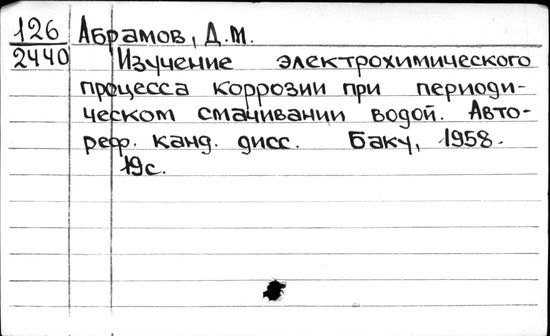 126 Абрамов, Д.М.
2440 Изучение электрохимического
процесса коррозии при периоди-
ческом смачивании водой. Авто-
реф. канд. дисс. Баку, 1958.
19с.